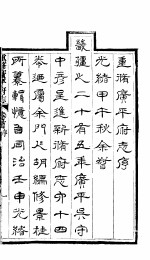 重脩廣平府志序
光緒甲午秋余督
畿疆之二十有五年廣平吳守
中彥呈進新脩府志六十四
卷迺屬余門人胡編修景桂
所纂輯憶自同治壬申光緒